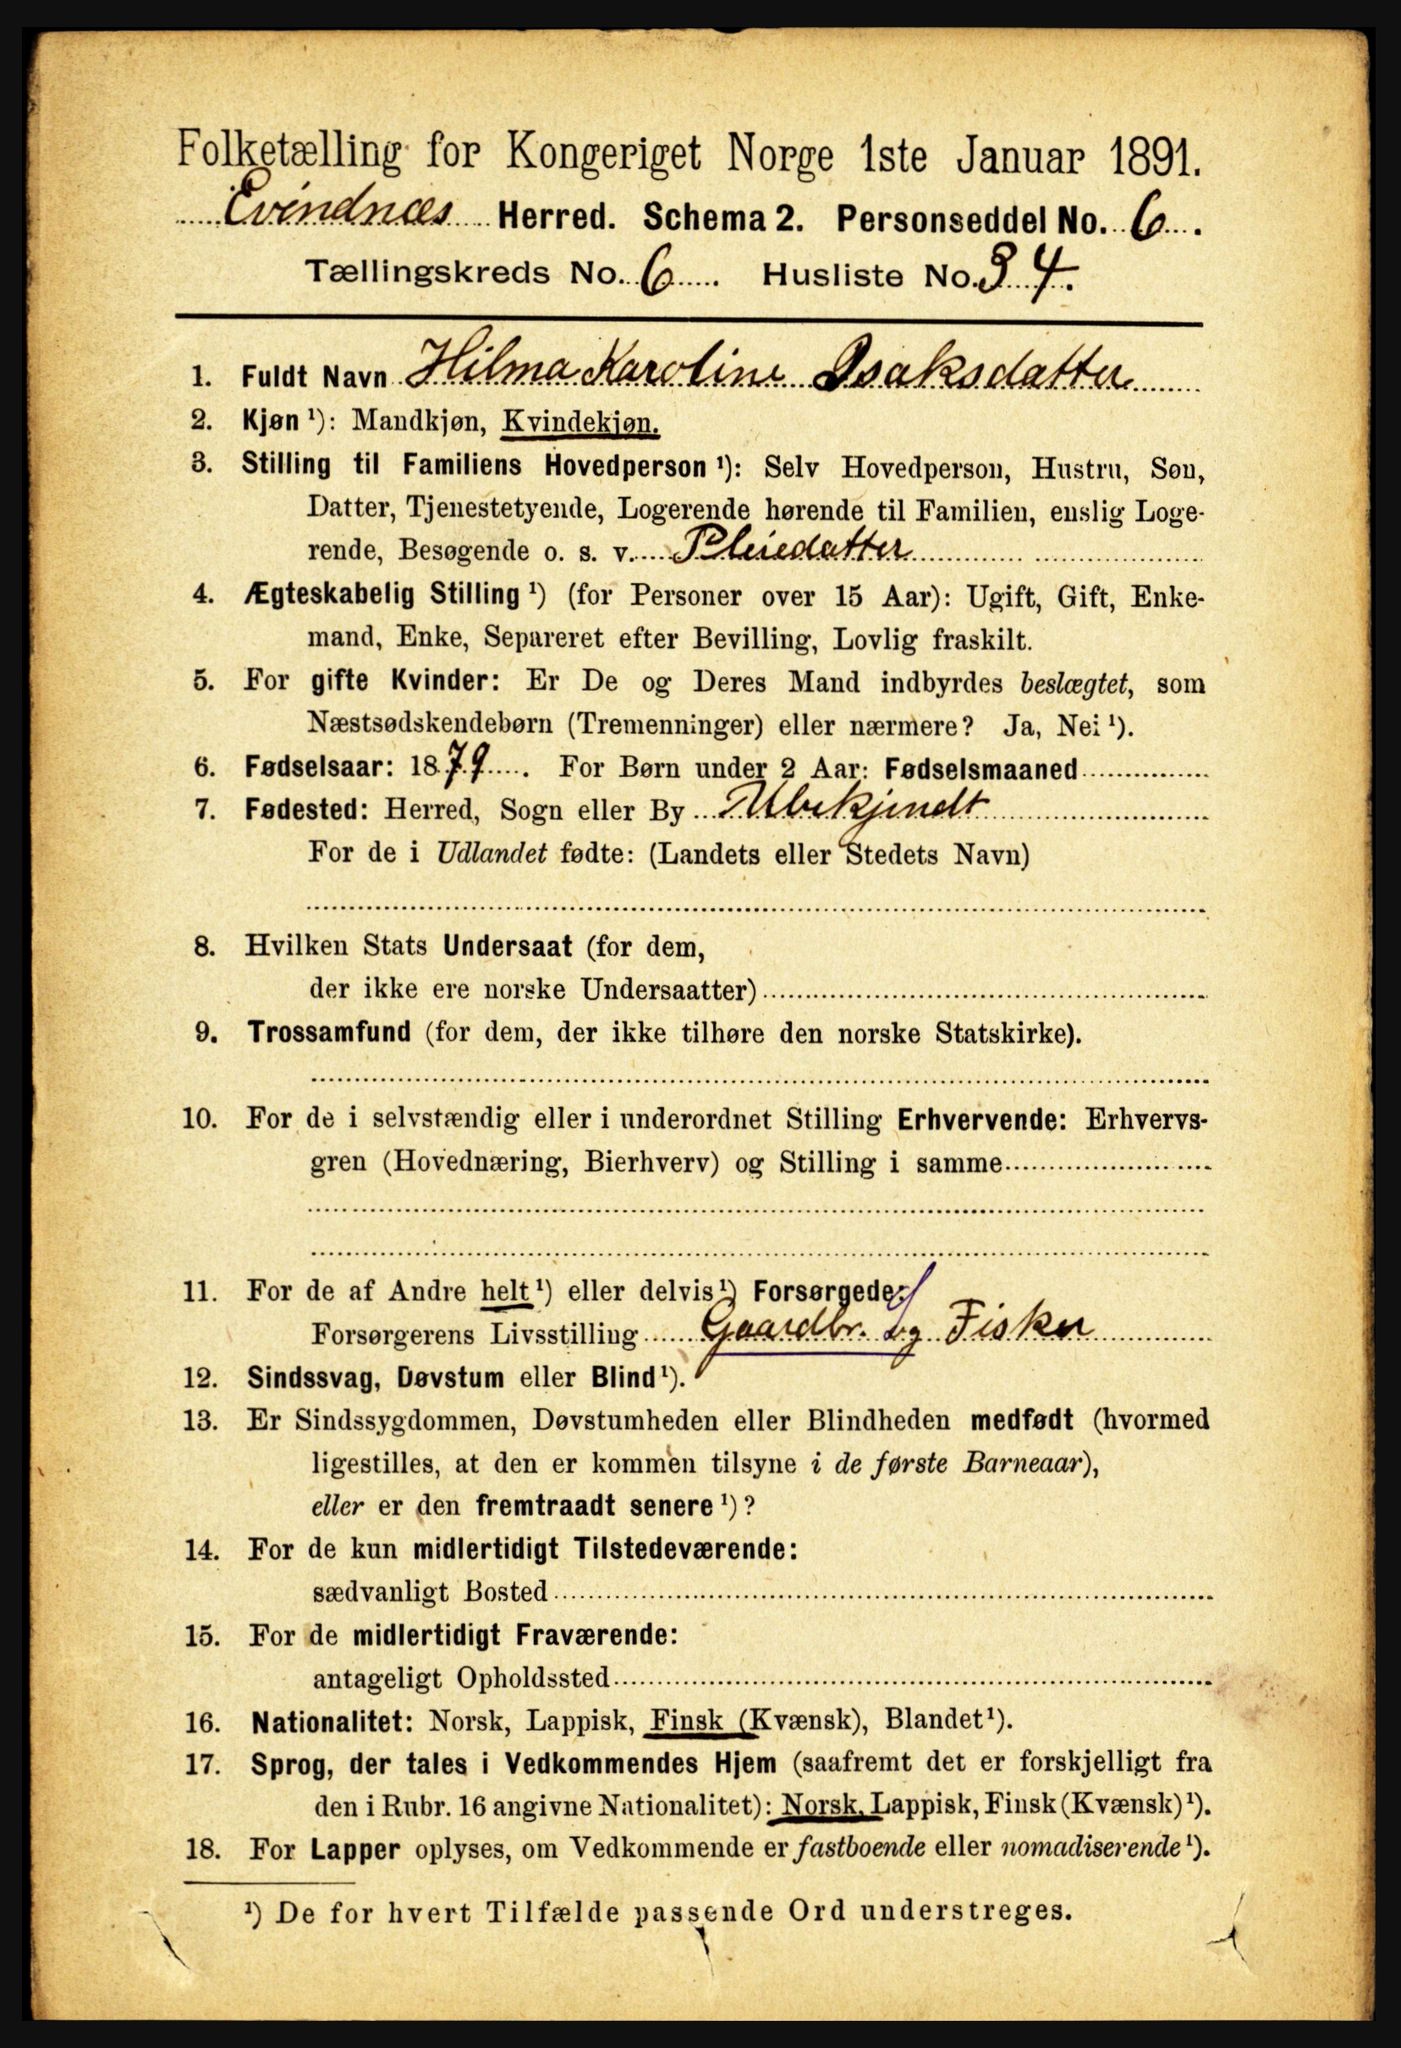 Folketælling for Kongeriget Norge 1ste Januar 1891.
Evindnæs Herred. Schema 2. Personseddel No. 6.
Tællingskreds No. 6. Husliste No. 34.
1. Fuldt Navn Hilma Karoline Isaksdatter
2. Kjøn ¹): Mandkjøn, Kvindekjøn.
3. Stilling til Familiens Hovedperson ¹): Selv Hovedperson, Hustru, Søn,
Datter, Tjenestetyende, Logerende hørende til Familien, enslig Loge-
rende, Besøgende o. s. v. Pleiedatter
4. Ægteskabelig Stilling ¹) (for Personer over 15 Aar): Ugift, Gift, Enke-
mand, Enke, Separeret efter Bevilling, Lovlig fraskilt.
5. For gifte Kvinder: Er De og Deres Mand indbyrdes beslægtet, som
Næstsødskendebørn (Tremenninger) eller nærmere? Ja, Nei ¹).
6. Fødselsaar: 1879. For Børn under 2 Aar: Fødselsmaaned
7. Fødested: Herred, Sogn eller By Ubekjendt
For de i Udlandet fødte: (Landets eller Stedets Navn)
8. Hvilken Stats Undersaat (for dem,
der ikke ere norske Undersaatter)
9. Trossamfund (for dem, der ikke tilhøre den norske Statskirke).
10. For de i selvstændig eller i underordnet Stilling Erhvervende: Erhvervs-
gren (Hovednæring, Bierhverv) og Stilling i samme
11. For de af Andre helt ¹) eller delvis ¹) Forsørgede:
Forsørgerens Livsstilling Gaardbr. og Fisker
12. Sindssvag, Døvstum eller Blind ¹).
13. Er Sindssygdommen, Døvstumheden eller Blindheden medfødt (hvormed
ligestilles, at den er kommen tilsyne i de første Barneaar),
eller er den fremtraadt senere ¹)?
14. For de kun midlertidigt Tilstedeværende:
sædvanligt Bosted
15. For de midlertidigt Fraværende:
antageligt Opholdssted
16. Nationalitet: Norsk, Lappisk, Finsk (Kvænsk), Blandet ¹).
17. Sprog, der tales i Vedkommendes Hjem (saafremt det er forskjelligt fra
den i Rubr. 16 angivne Nationalitet): Norsk, Lappisk, Finsk (Kvænsk) ¹).
18. For Lapper oplyses, om Vedkommende er fastboende eller nomadiserende ¹).
¹) De for hvert Tilfælde passende Ord understreges.